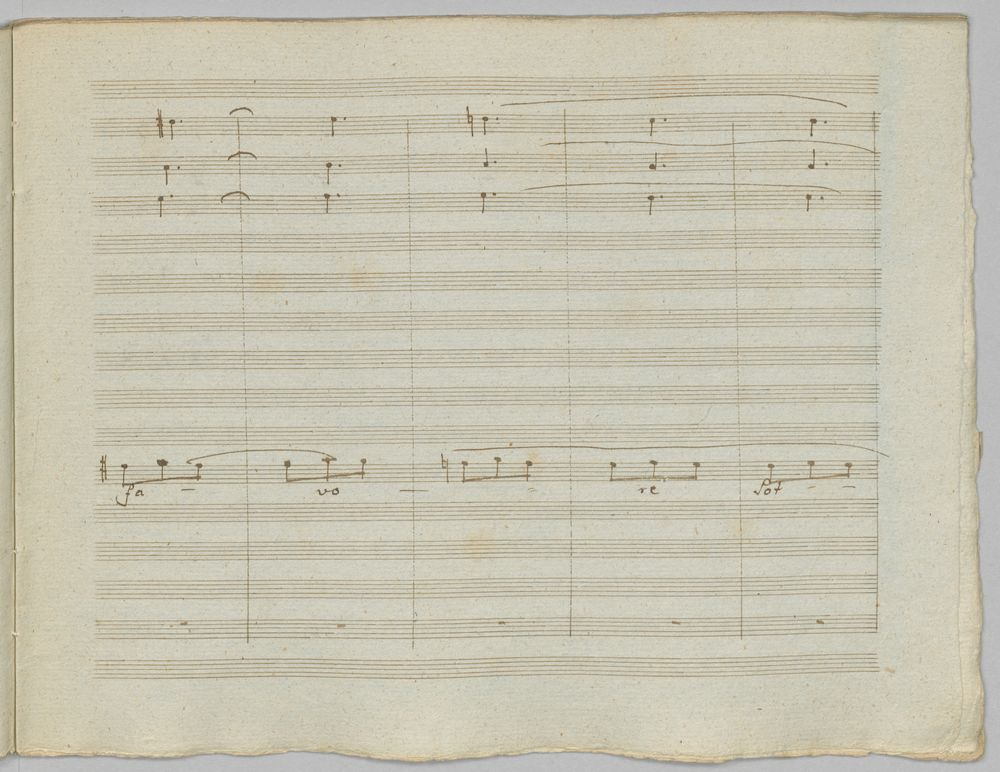 fa - vo - - re Sot - -